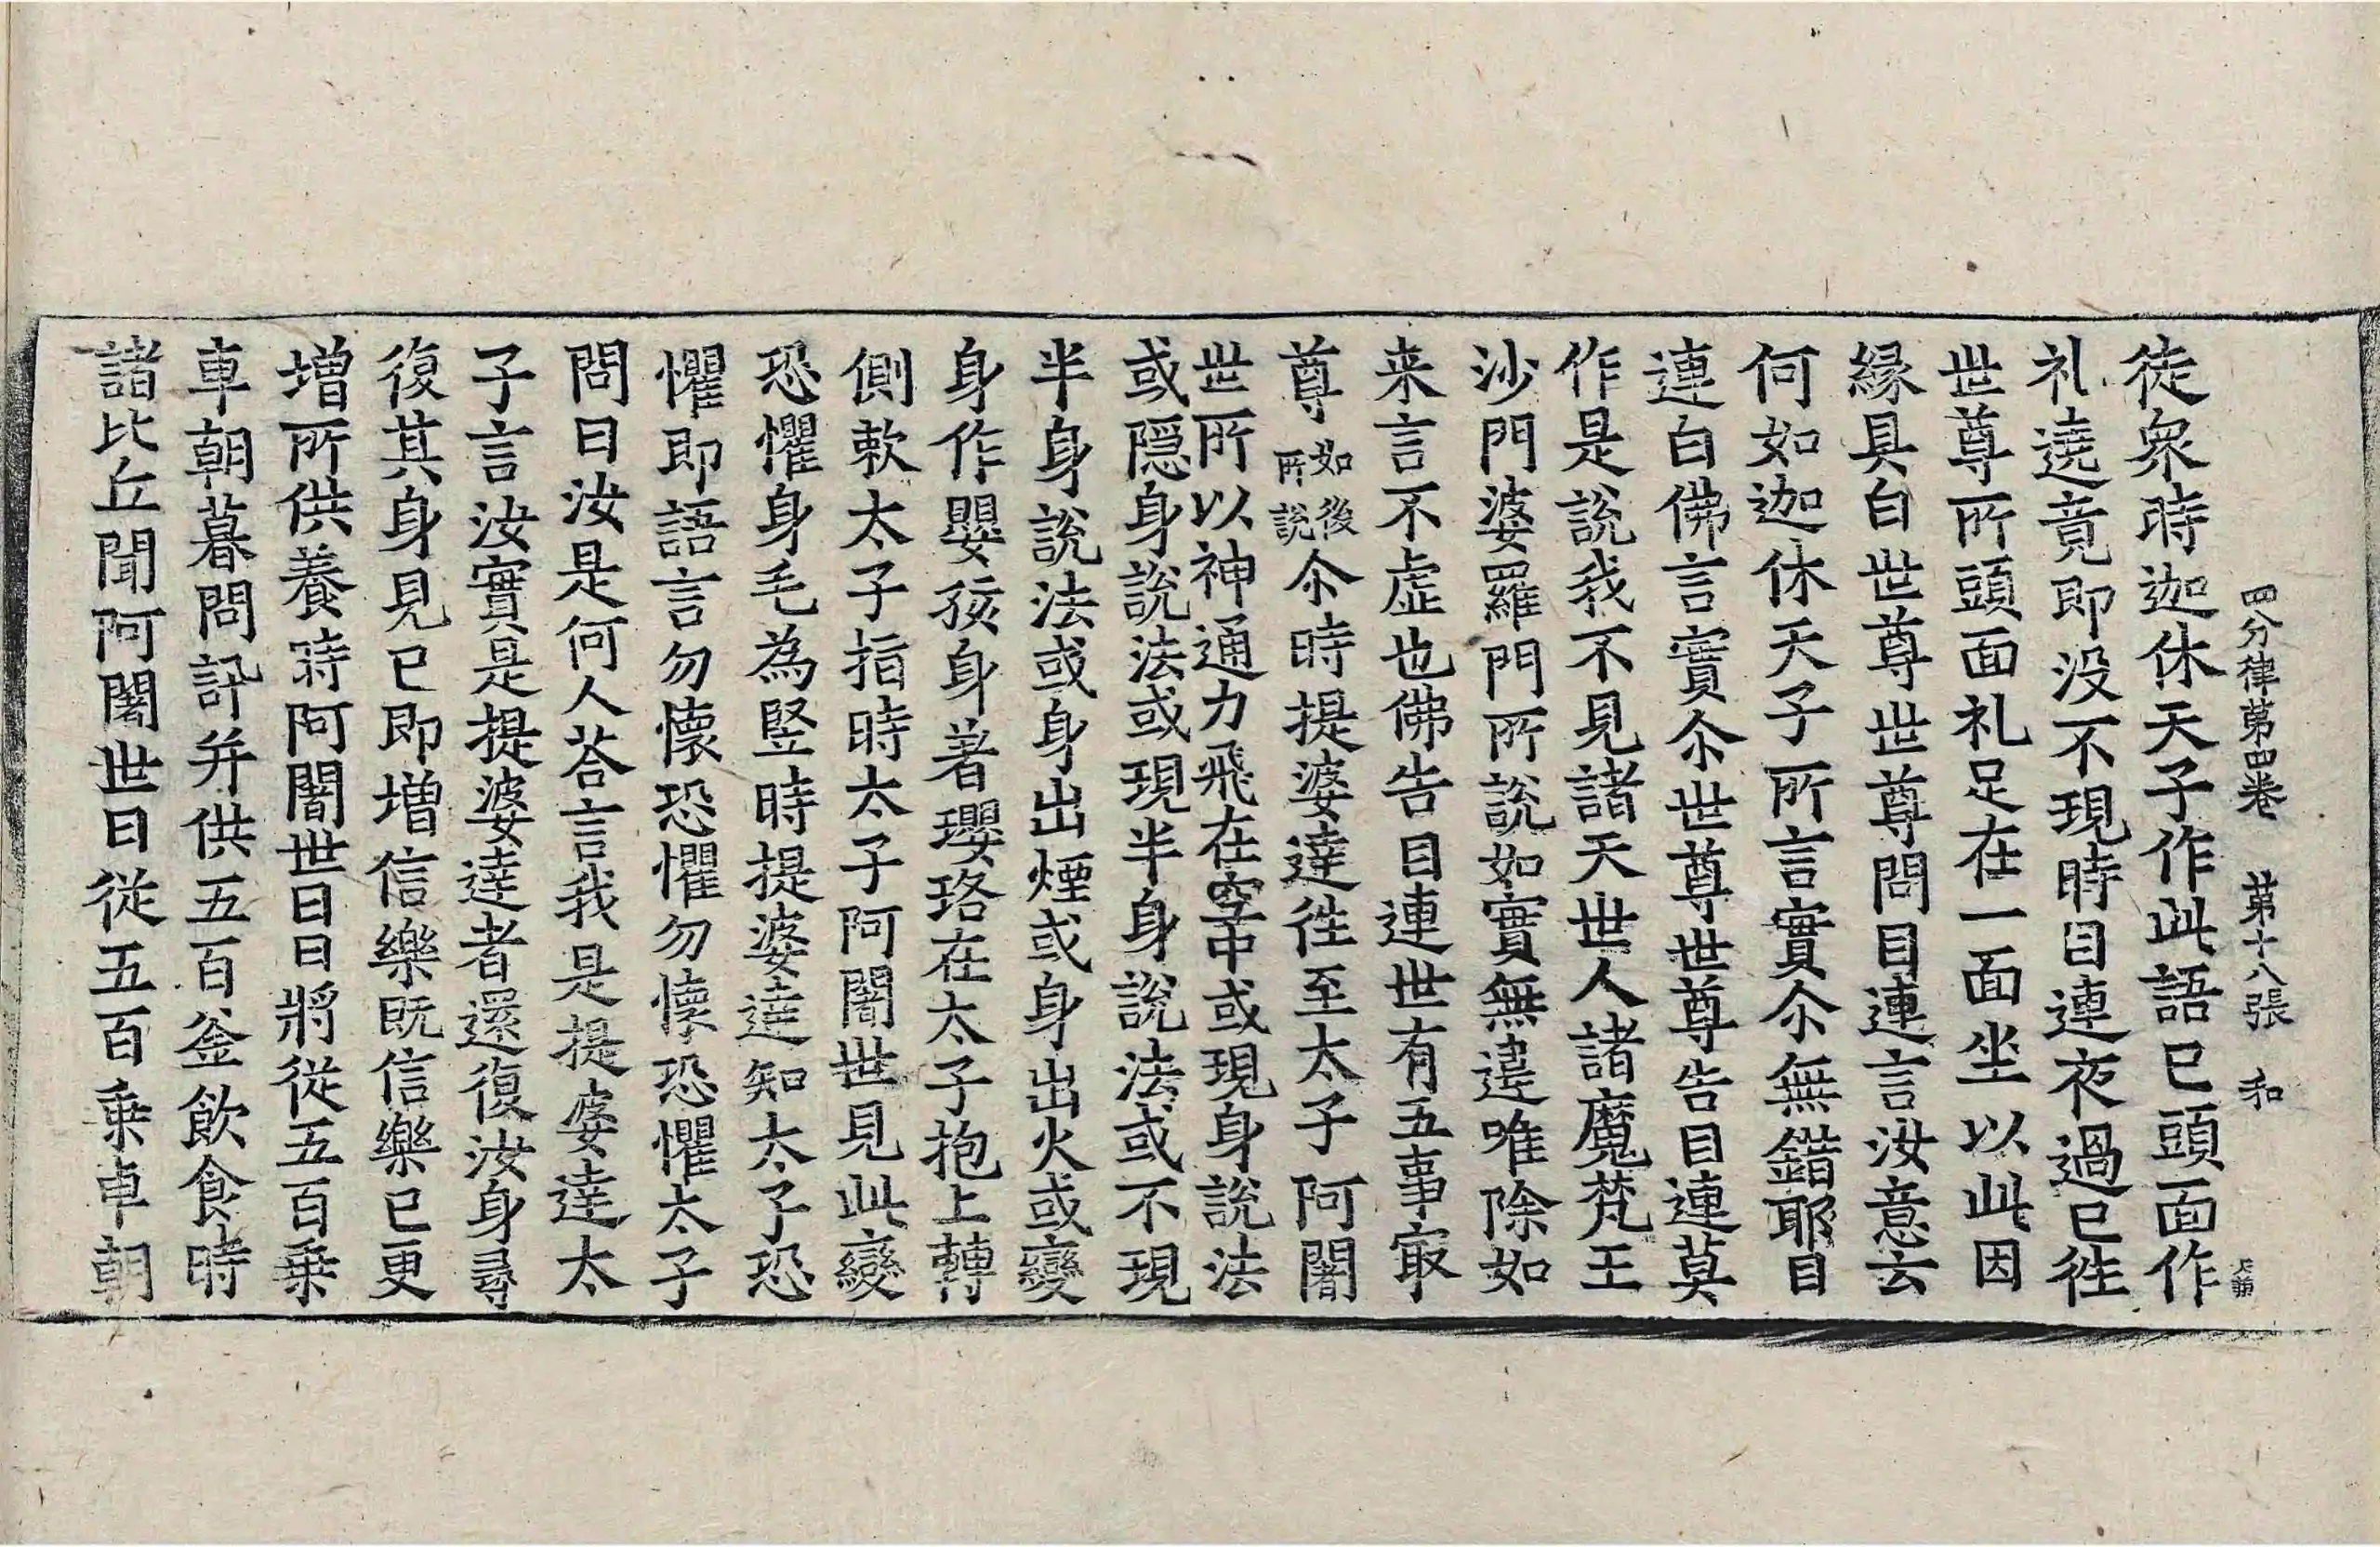 四分律第四卷 第十八張 和
徒衆時迦休天子作此語已頭面作
礼遶竟即没不現時目連夜過已徃
世尊所頭面礼足在一面坐以此因
縁具白世尊世尊問目連言汝意云
何如迦休天子所言實尒無錯耶目
連白佛言實尒世尊世尊告目連莫
作是說我不見諸天世人諸魔梵王
沙門婆羅門所說如實無違唯除如
来言不虛也佛告目連世有五事㝡
尊如後所說尒時提婆達徃至太子阿闍
世所以神通力飛在空中或現身說法
或隱身說法或現半身說法或不現
半身說法或身出煙或身出火或變
身作嬰孩身著瓔珞在太子抱上轉
側𠲿太子指時太子阿闍世見此變
恐懼身毛為竪時提婆達知太子恐
懼即語言勿懷恐懼勿懷恐懼太子
問曰汝是何人荅言我是提婆達太
子言汝實是提婆達者還復汝身尋
復其身見已即增信樂既信樂已更
增所供養時阿闍世日日將從五百乗
車朝暮問訊并供五百釜飲食時
諸比丘聞阿闍世日從五百乗車朝